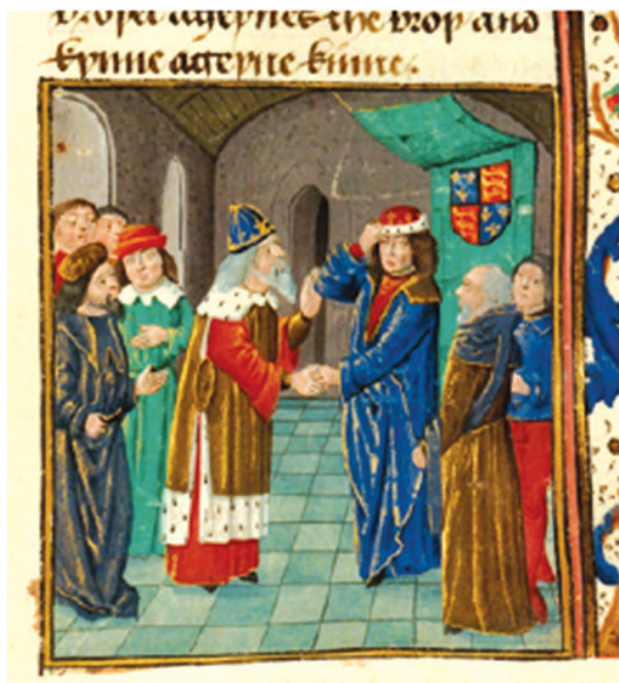 ageynes the and
kynne ageyne kinne.